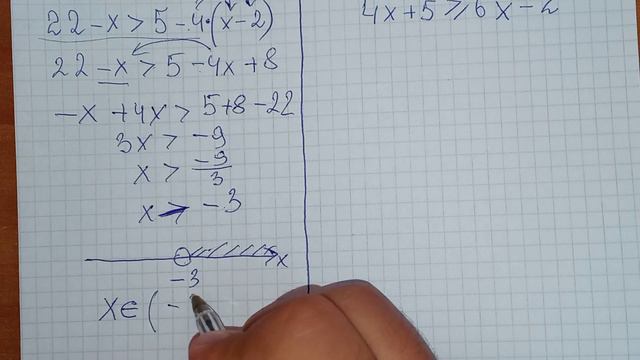 22 - x > 5 - 4·(x-2)
22 - x > 5 - 4x + 8
-x + 4x > 5 + 8 - 22
3x > -9
x > -9/3
x > -3
x
-3
x ∈ ( -
4x + 5 ⩾ 6x - 2